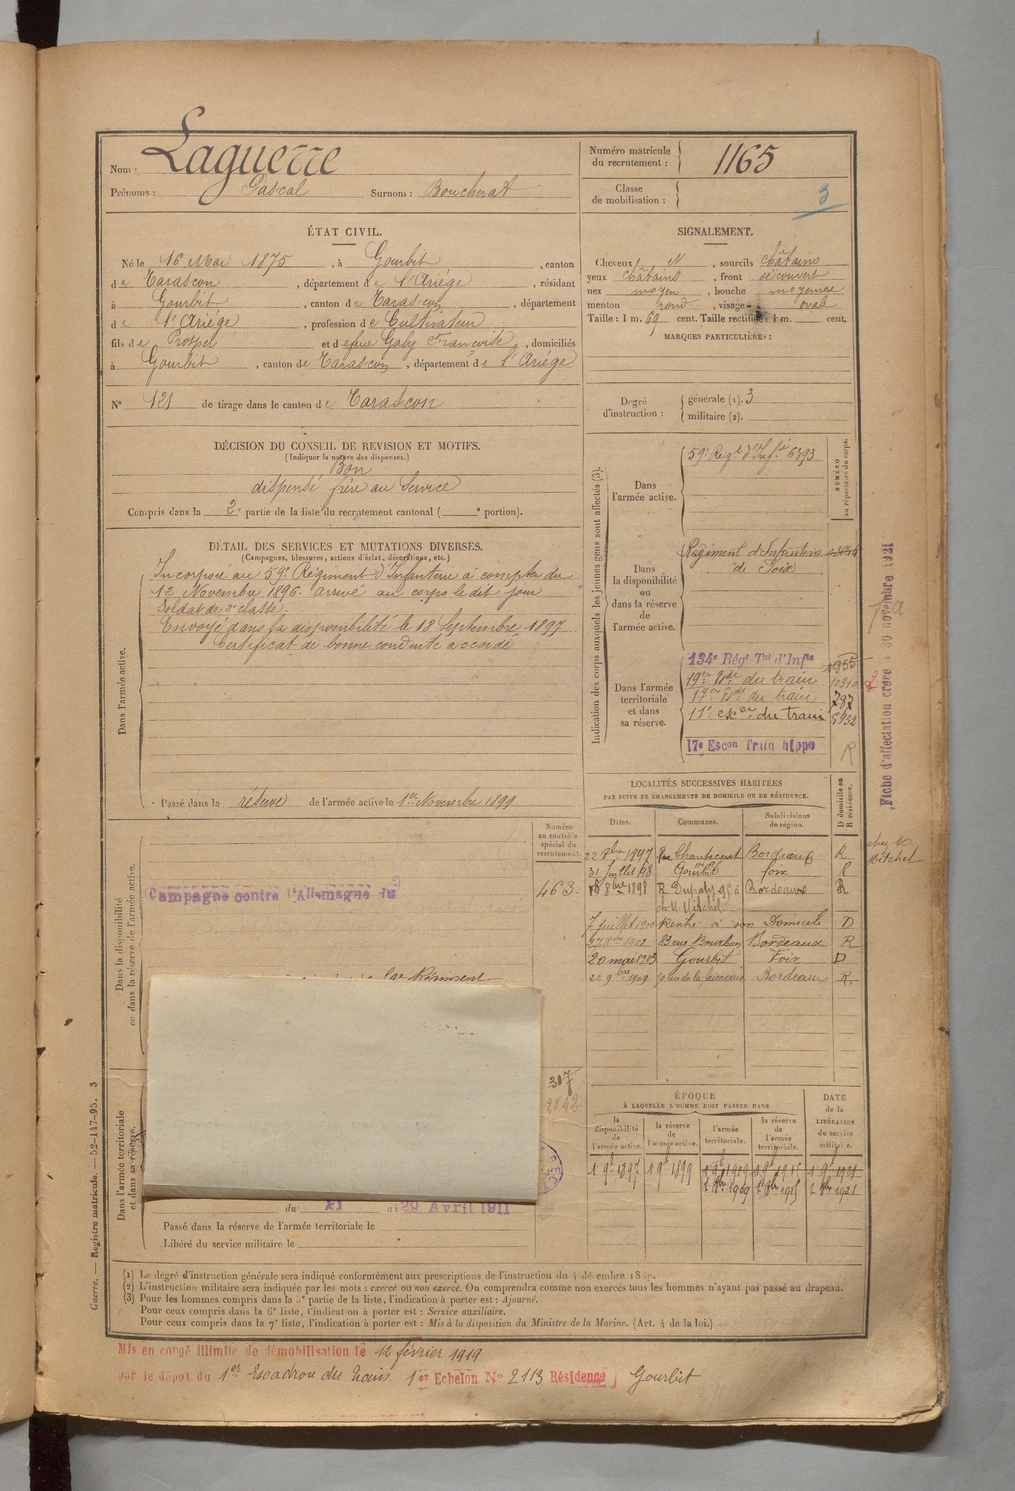 Nom : Laguerre
Prénoms : Pascal Surnom : Boucherat
Numéro matricule du recrutement : 1165
Classe de mobilisation : 3
ÉTAT CIVIL.
Né le 16 Mai 1875, à Gourbit, canton
de Tarascon, département de l'Ariége, résidant
à Gourbit, canton de Tarascon, département
de l'Ariége, profession de Cultivateur
fils de Prosper et de feue Gaby Françoise, domiciliés
à Gourbit, canton de Tarascon, département de l'Ariége
N° 121 de tirage dans le canton de Tarascon
SIGNALEMENT.
Cheveux N, sourcils châtains
yeux châtains, front découvert
nez moyen, bouche moyenne
menton rond, visage oval
Taille : 1 m. 69 cent. Taille rectifiée : 1 m. cent.
MARQUES PARTICULIÈRES :
Degré d'instruction : générale (1). 3
militaire (2).
DÉCISION DU CONSEIL DE REVISION ET MOTIFS.
(Indiquer la nature des dispenses.)
Bon
dispensé frère au service
Compris dans la 2e partie de la liste du recrutement cantonal ( e portion).
DÉTAIL DES SERVICES ET MUTATIONS DIVERSES.
(Campagnes, blessures, actions d'éclat, décorations, etc.)
Dans l'armée active.
Incorporé au 59e Régiment d'Infanterie à compter du
12 Novembre 1896. arrivé au corps le dit jour
Soldat de 2e classe.
Envoyé dans la disponibilité le 18 Septembre 1897
Certificat de bonne conduite accordé
Passé dans la réserve de l'armée active le 1er Novembre 1899
Indication des corps auxquels les jeunes gens sont affectés (3).
NUMÉRO au répertoire du corps.
Dans l'armée active.
59e Régt d'Infie 6393
Dans la disponibilité ou dans la réserve de l'armée active.
Régiment d'Infanterie
de Foix
Dans l'armée territoriale et dans sa réserve.
134e Régt Tal d'Infie 1955
19e du train 10310
17e du train 787
11e du train 8932
17e Escon Train hippo R
Fiche d'affectation créée 30 novembre 1921
LOCALITÉS SUCCESSIVES HABITÉES
PAR SUITE DE CHANGEMENTS DE DOMICILE OU DE RÉSIDENCE.
D domicile ou R résidence.
Dates. Communes. Subdivisions de région.
22 8bre 1897 Rue Chantecrit Bordeaux R
31 juillet 98 Gourbit foix R
8bre 1898 R Dupaty 95 à Bordeaux R
ch M. Mitchel
chez M Mitchel
7 juillet 1900 Rentré à son Domicile D
1902 83 rue Bourbon Bordeaux R
20 mai 1903 Gourbit Foix D
22 9bre 1909 rue de la faiencerie Bordeaux R.
Numéro au contrôle spécial du recrutement.
463.
Dans la disponibilité ou dans la réserve de l'armée active.
Campagne contre l'Allemagne du
307
2842
Dans l'armée territoriale et dans sa réserve.
du 21 au 29 Avril 1911
Passé dans la réserve de l'armée territoriale le
Libéré du service militaire le
ÉPOQUE
À LAQUELLE L'HOMME DOIT PASSER DANS
la disponibilité de l'armée active. la réserve de l'armée active. l'armée territoriale. la réserve de l'armée territoriale. DATE de la LIBÉRATION du service militaire.
1 9b 1897 1 9b 1899 1 9b 1909 1 9b 1915 1 9b 1921
1 8bre 1909 1 8bre 1915 1 8bre 1921
(1) Le degré d'instruction générale sera indiqué conformément aux prescriptions de l'instruction du 4 décembre 1889.
(2) L'instruction militaire sera indiquée par les mots : exercé ou non exercé. On comprendra comme non exercés tous les hommes n'ayant pas passé au drapeau.
(3) Pour les hommes compris dans la 5e partie de la liste, l'indication à porter est : Ajourné.
Pour ceux compris dans la 6e liste, l'indication à porter est : Service auxiliaire.
Pour ceux compris dans la 7e liste, l'indication à porter est : Mis à la disposition du Ministre de la Marine. (Art. 4 de la loi.)
Guerre. — Registre matricule. — 52-147-95. 3
Mis en congé illimité de démobilisation le 12 février 1919
par le dépôt du 1er Escadron du Train 1er Echelon N° 2113 Résidence Gourbit